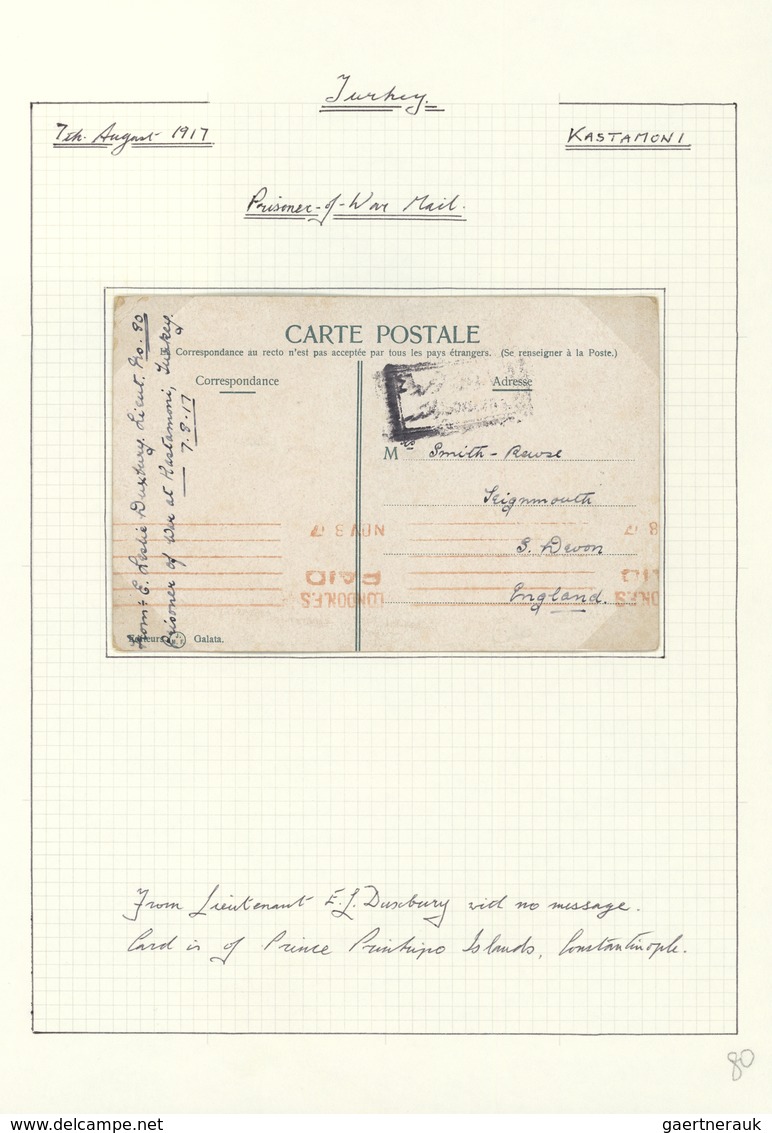 Turkey.
7th. August 1917
KASTAMONI
Prisoner-of-War Mail.
CARTE POSTALE
Correspondance au recto n'est pas acceptée par tous les pays étrangers. (Se renseigner à la Poste.)
Correspondance
Adresse
From:- E. Leslie Duxbury. Lieut. No. 90
Prisoner of War at Kastamoni, Turkey.
7.8.17
Mrs Smith-Rewse
Teignmouth
S. Devon
England.
NOV 3 17
PAID
LONDON.F.S
8 17
Editeurs Galata.
From Lieutenant E.L. Duxbury with no message.
Card is of Prince Prinkipo Islands, Constantinople.
80
delcampe.net
gaertnerauk